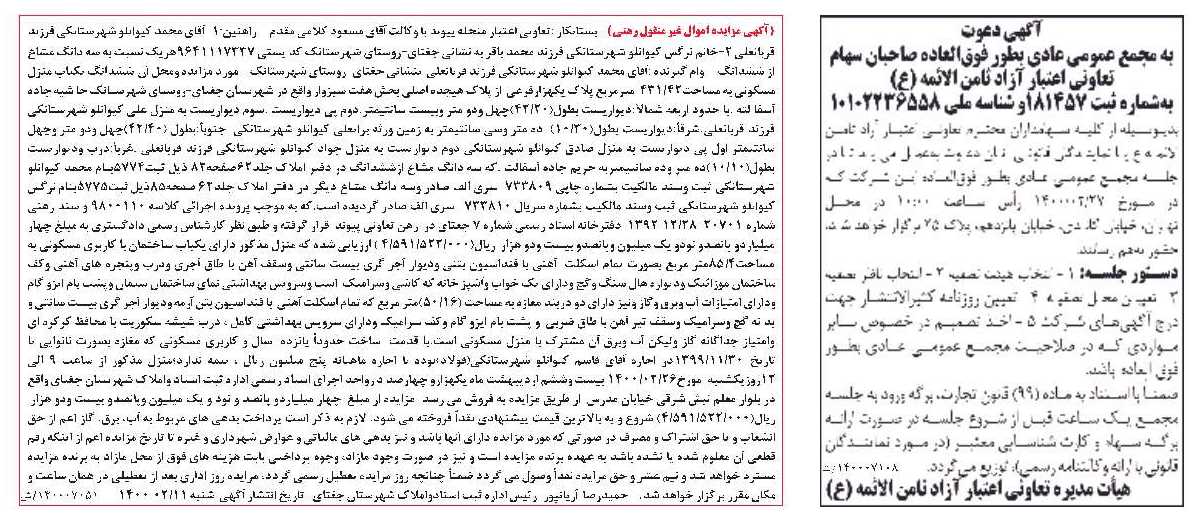 (آگهی مزایده اموال غیر منقول رهنی) بستانکار :تعاونی اعتبار پیوند با وکالت آقای مسعود کلامی مقدم راهنین:۱- آقای محمد کیوانلو شهرستانکی فرزند
قربانعلی ۲-خانم نرگس کیوانلو شهرستانکی فرزند محمد باقر به نشانی جغتای-روستای شهرستانک کد پستی ۹۶۴۱۱۱۷۲۳۷هریک نسبت به سه دانگ مشاع
از ششدانگ وام گیرنده :آقای محمد کیوانلو شهرستانکی فرزند قربانعلی بنشانی جغتای روستای شهرستانک مورد مزایده ومحل آن ششدانگ یکباب منزل
مسکونی به مساحت۴۳۱/۴۲ مترمربع پلاک یکهزارفرعی از پلاک هیجده اصلی بخش هفت سبزوار واقع در شهرستان جغتای-روستای شهرستانک حاشیه جاده
آسفالته .با حدود اربعه شمالاً:دیواریست بطول(۴۲/۲۰)چهل ودو متر وبیست سانتیمتر.دوم پی دیواریست .سوم دیواریست به منزل علی کیوانلو شهرستانکی
فرزند قربانعلی.شرقاً:دیواریست بطول(۱۰/۳۰) ده متر وسی سانتیمتر به زمین ورثه براتعلی کیوانلو شهرستانکی جنوباً:بطول (۴۲/۴۰)چهل ودو متر وچهل
سانتیمتر اول پی دیواریست به منزل صادق کیوانلو شهرستانکی دوم دیواریست به منزل جواد کیوانلو شهرستانکی فرزند قربانعلی .غرباً:درب ودیواریست
بطول(۱۰/۱۰)ده متر وده سانتیمتربه حریم جاده آسفالت .که سه دانگ مشاع ازششدانگ در دفتر املاک جلد۶۲صفحه۸۲ ذیل ثبت۵۷۷۴بنام محمد کیوانلو
شهرستانکی ثبت وسند مالکیت بشماره چاپی ۷۳۳۸۰۹ سری الف صادر وسه دانگ مشاع دیگر در دفتر املاک جلد۶۲ صفحه۸۵ذیل ثبت۵۷۷۵بنام نرگس
کیوانلو شهرستانکی ثبت وسند مالکیت بشماره سریال ۷۳۳۸۱۰ سری الف صادر گردیده است.که به موجب پرونده اجرائی کلاسه ۹۸۰۰۱۱۰ و سند رهنی
شماره ۲۰۷۰۱ ۱۳۹۲/۱۲/۲۸ دفترخانه اسناد رسمی شماره ۷ جغتای در رهن تعاونی پیوند قرار گرفته و طبق نظر کارشناس رسمی دادگستری به مبلغ چهار
میلیاردو پانصدو نودو یک میلیون وپانصدو بیست ودو هزار ریال(۴/۵۹۱/۵۲۲/۰۰۰) ارزیابی شده که منزل مذکور دارای یکباب ساختمان با کاربری مسکونی به
مساحت۸۵/۴متر مربع بصورت تمام اسکلت آهنی با فنداسیون بتنی ودیوار آجر گری بیست سانتی وسقف آهن با طاق آجری ودرب وپنجره های آهنی وکف
ساختمان موزائیک ودیواره هال سنگ وگچ ودارای یک خواب وآشپز خانه که کاشی وسرامیک است وسرویس بهداشتی نمای ساختمان سیمان وپشت بام ایزو گام
ودارای امتیازات آب وبرق وگاز ونیز دارای دو دربند مغازه به مساحت (۵۰/۱۶)متر مربع که تمام اسکلت آهنی با فنداسیون بتن آرمه ودیوار آجر گری بیست سانتی و
بدنه گچ وسرامیک وسقف تیر آهن با طاق ضربی و پشت بام ایزو گام وکف سرامیک ودارای سرویس بهداشتی کامل ، درب شیشه سکوریت با محافظ کرکره ای
وامتیاز جداگانه گاز ولیکن آب وبرق آن مشترک با منزل مسکونی است.با قدمت ساخت حدوداً پانزده سال و کاربری مسکونی که مغازه بصورت نانوایی تا
تاریخ ۱۳۹۹/۱۱/۳۰در اجاره آقای قاسم کیوانلو شهرستانکی(فولاد)بوده با اجاره ماهیانه پنج میلیون ریال ، بیمه ندارد؛منزل مذکور از ساعت ۹ الی
۱۲روزیکشنبه مورخ۱۴۰۰/۰۲/۲۶ بیست وششم اردیبهشت ماه یکهزارو چهارصد درواحد اجرای اسناد رسمی اداره ثبت اسناد واملاک شهرستان جغتای واقع
در بلوار معلم نبش شرقی خیابان مدرس از طریق مزایده به فروش می رسد. مزایده از مبلغ چهار میلیاردو پانصد و نود و یک میلیون وپانصدو بیست ودو هزار
ریال(۴/۵۹۱/۵۲۲/۰۰۰) شروع و به بالاترین قیمت پیشنهادی نقداً فروخته می شود. لازم به ذکر است پرداخت بدهی های مربوط به آب، برق، گاز اعم از حق
انشعاب و یا حق اشتراک و مصرف در صورتی که مورد مزایده دارای آنها باشد و نیز بدهی های مالیاتی و عوارض شهرداری و غیره تا تاریخ مزایده اعم از اینکه رقم
قطعی آن معلوم شده یا نشده باشد به عهده برنده مزایده است و نیز در صورت وجود مازاد، وجوه پرداختی بابت هزینه های فوق از محل مازاد به برنده مزایده
مسترد خواهد شد و نیم عشر و حق مزایده نقداً وصول می گردد ضمناً چنانچه روز مزایده تعطیل رسمی گردد، مزایده روز اداری بعد از تعطیلی در همان ساعت و
مکان مقرر برگزار خواهد شد. حمیدرضا آریانپور رئیس اداره ثبت اسنادواملاک شهرستان جغتای تاریخ انتشار آگهی شنبه ۱۴۰۰/۰۲/۱۱ ۱۴۰۰۰۷۰۵۱/ث
آگهی دعوت
به مجمع عمومی عادی بطور فوق‌العاده صاحبان سهام
تعاونی اعتبار آزاد ثامن الائمه (ع)
به‌شماره ثبت ۱۸۱۴۵۷و شناسه ملی ۱۰۱۰۲۲۳۶۵۵۸
بدینوسیله از کلیه سهامداران محترم تعاونی اعتبار آزاد ثامن
الائمه ع یا نمایندگان قانونی آنان دعوت به‌عمل می‌آید تا در
جلسه مجمع عمومی عادی بطور فوق‌العاده این شرکت که
در مورخ ۱۴۰۰/۰۲/۲۷ رأس ساعت ۱۰:۰۰ در محل
تهران، خیابان گاندی، خیابان پانزدهم، پلاک ۲۵ برگزار خواهد شد،
حضور به‌هم رسانند.
دستور جلسه: ۱ - انتخاب هیئت تصفیه ۲ - انتخاب ناظر تصفیه
۳ - تعیین محل تصفیه ۴ - تعیین روزنامه کثیرالانتشار جهت
درج آگهی‌های شرکت ۵ - اخذ تصمیم در خصوص سایر
مواردی که در صلاحیت مجمع عمومی عادی بطور
فوق العاده باشد.
ضمناً با استناد به ماده (۹۹) قانون تجارت، برگه ورود به جلسه
مجمع یک ساعت قبل از شروع جلسه در صورت ارائه
برگه سهام و کارت شناسایی معتبر (در مورد نمایندگان
قانونی با ارائه وکالتنامه رسمی)، توزیع می‌گردد. ۱۴۰۰۰۷۱۰۸/ث
هیأت مدیره تعاونی اعتبار آزاد ثامن الائمه (ع)